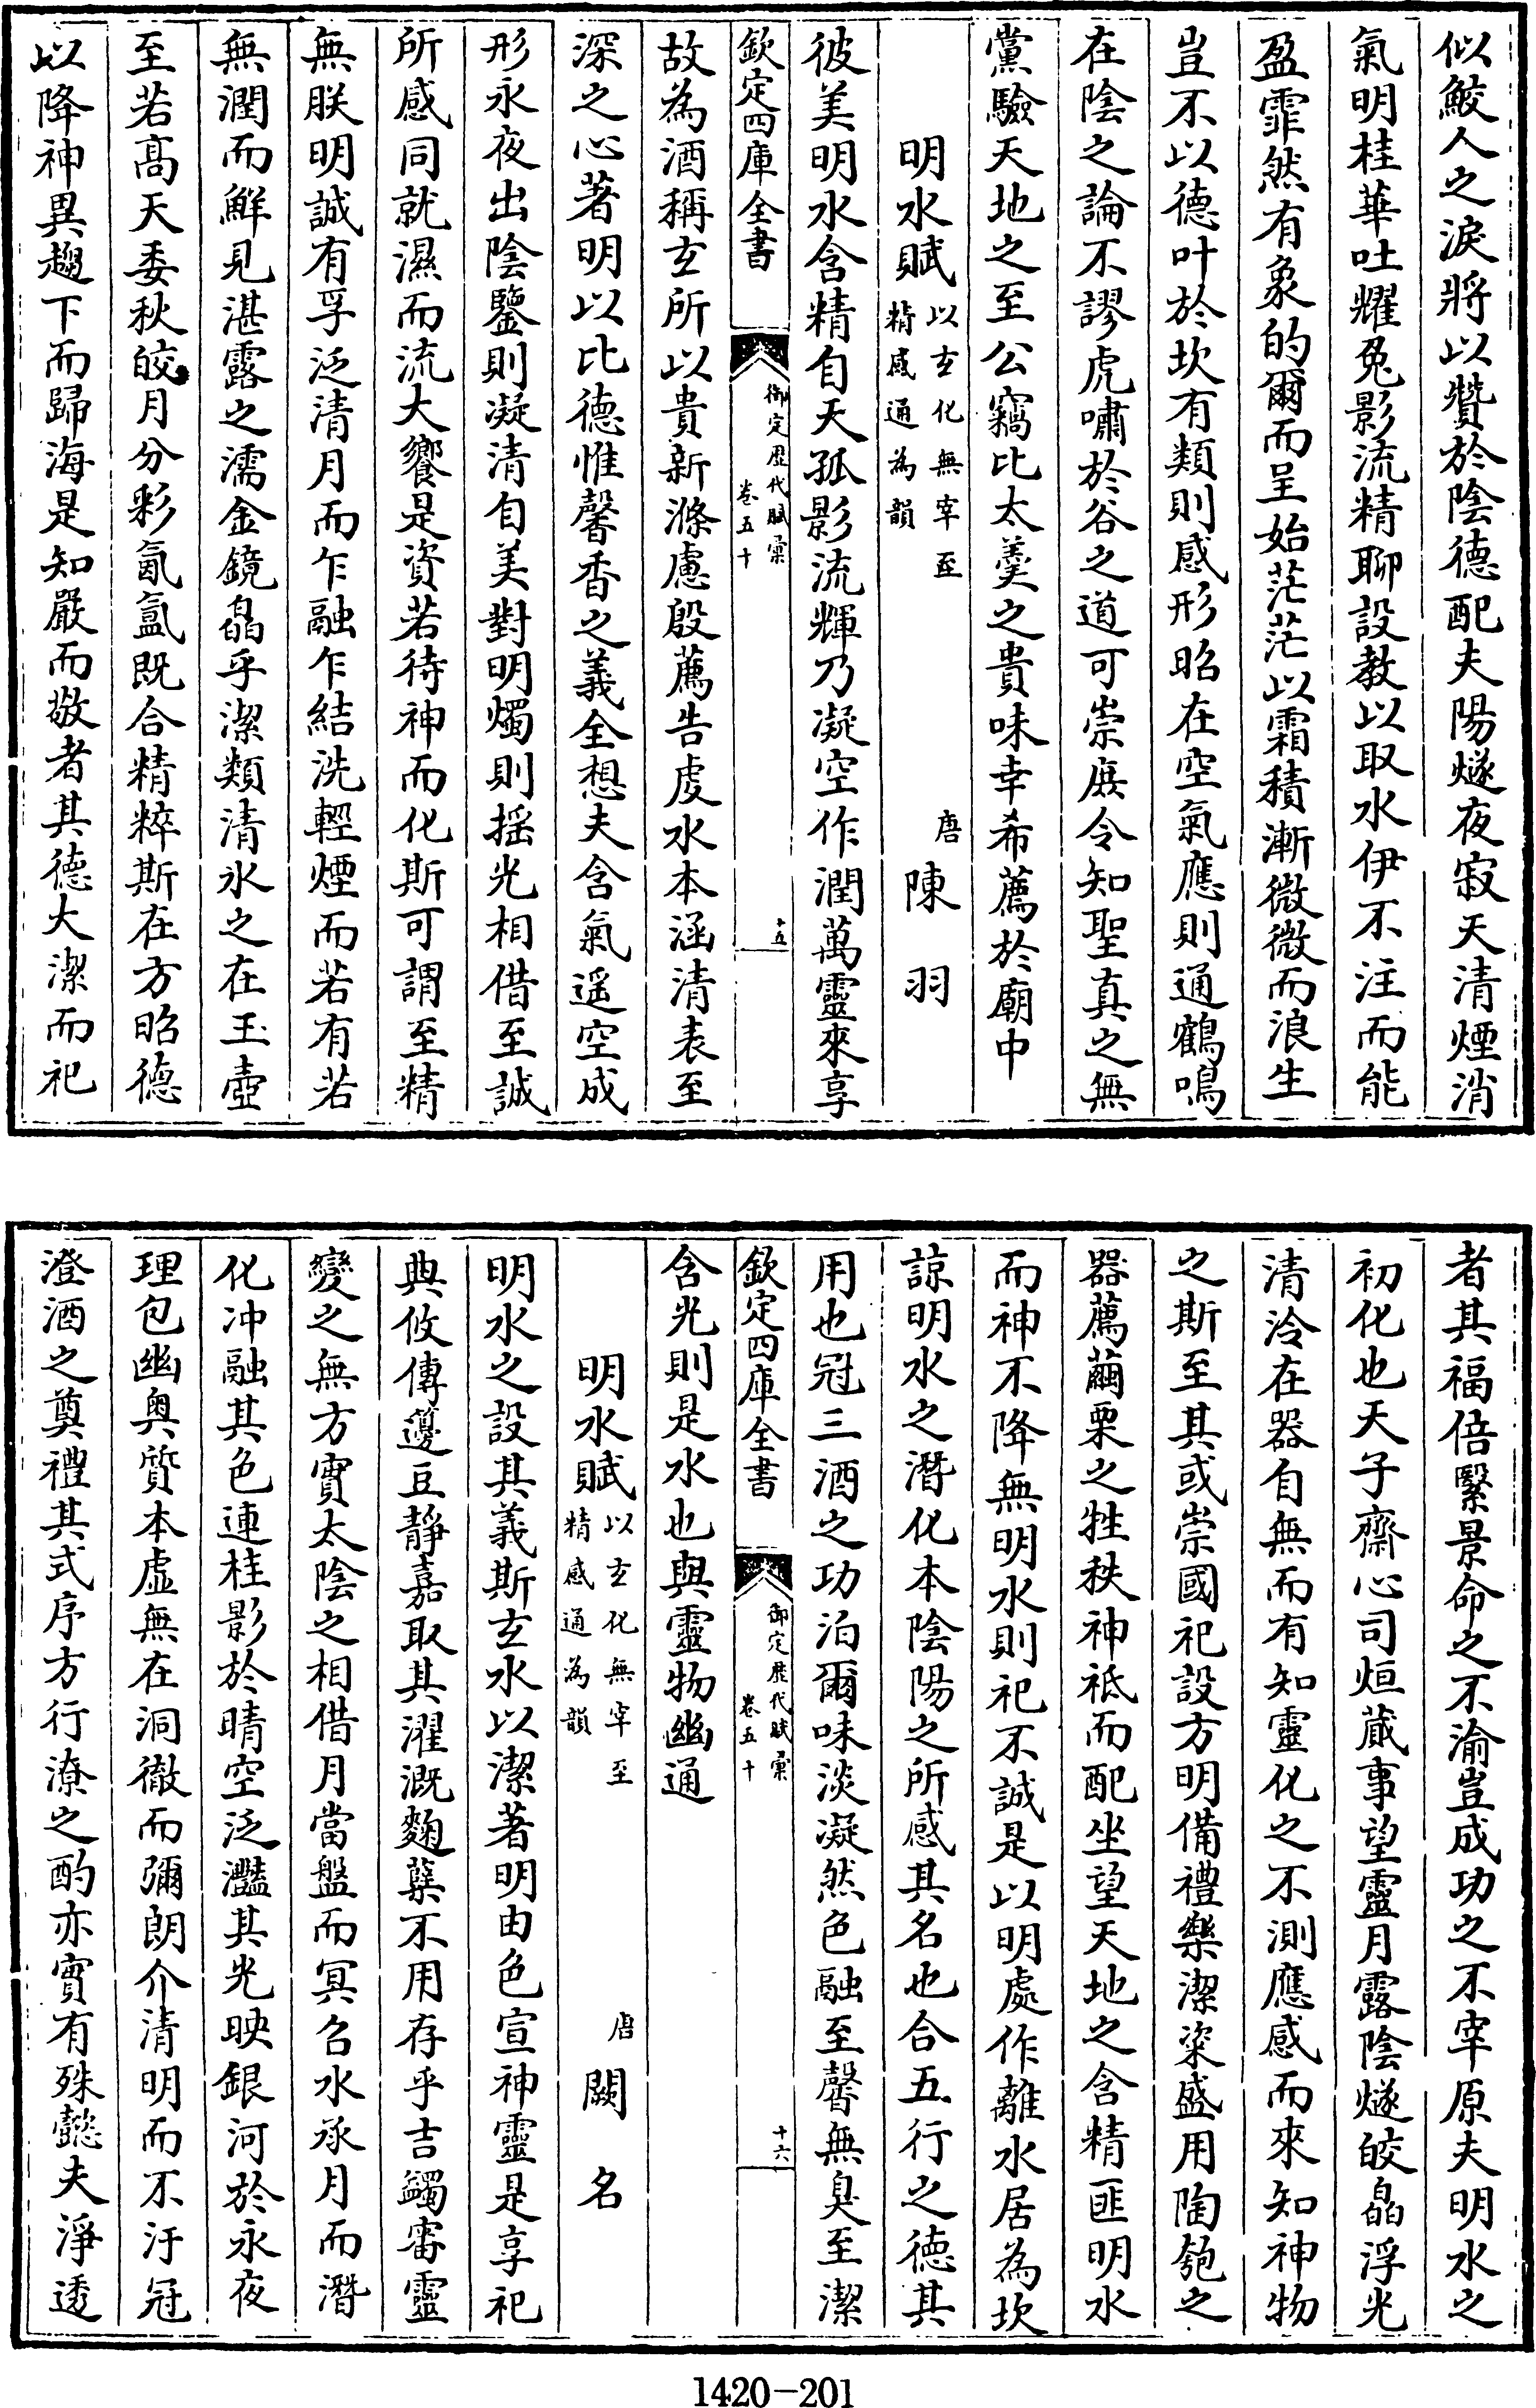 似鮫人之淚將以贊於陰德配夫陽燧夜寂天清煙消
氣明桂華吐耀兔影流精聊設教以取水伊不注而能
盈霏然有象的爾而呈始茫茫以霜積漸微微而浪生
豈不以德叶於坎有類則感形昭在空氣應則通鶴鳴
在陰之論不謬虎嘯於谷之道可崇庶令知聖真之無
黨驗天地之至公竊比太羹之貴味幸希薦於廟中
明水賦以玄化無宰至精感通為韻 唐 陳羽
彼美明水含精自天孤影流輝乃凝空作潤萬靈來享
欽定四庫全書 御定歷代賦彙 卷五十 十五
故為酒稱玄所以貴新滌慮殷薦告虔水本涵清表至
深之心著明以比德惟馨香之義全想夫含氣遥空成
形永夜出陰鑒則凝清自美對明燭則揺光相借至誠
所感同就濕而流大饗是資若待神而化斯可謂至精
無朕明誠有孚泛清月而乍融乍結洗輕煙而若有若
無潤而鮮見湛露之濡金鏡皛乎潔類清氷之在玉壺
至若高天委秋皎月分彩氤氲既合精粹斯在方昭德
以降神異趨下而歸海是知嚴而敬者其德大潔而祀
者其福倍繄景命之不渝豈成功之不宰原夫明水之
初化也天子齋心司烜蕆事望靈月露陰燧皎皛浮光
清泠在器自無而有知靈化之不測應感而來知神物
之斯至其或崇國祀設方明備禮樂潔粢盛用陶匏之
器薦繭栗之牲秩神祇而配坐望天地之含精匪明水
而神不降無明水則祀不誠是以明處作離水居為坎
諒明水之潛化本陰陽之所感其名也合五行之德其
用也冠三酒之功泊爾味淡凝然色融至馨無臭至潔
欽定四庫全書 御定歷代賦彙 卷五十 十六
含光則是水也與靈物幽通
明水賦以玄化無宰至精感通為韻 唐 闕名
明水之設其義斯玄水以潔著明由色宣神靈是享祀
典攸傳籩豆靜嘉取其濯溉麴糵不用存乎吉蠲審靈
變之無方實太陰之相借月當盤而冥召水承月而潛
化冲融其色連桂影於晴空泛灩其光映銀河於永夜
理包幽奥質本虛無在洞徹而彌朗介清明而不汙冠
澄酒之奠禮其式序方行潦之酌亦實有殊懿夫淨透
1420-201